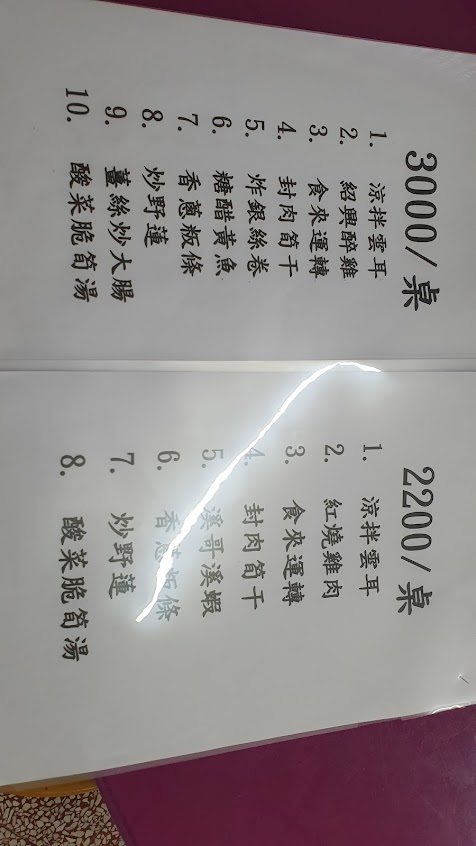 3000/桌
1. 涼拌雲耳
2. 紹興醉雞
3. 食來運轉
4. 封肉筍干
5. 炸銀絲卷
6. 糖醋黃魚
7. 香蔥粄條
8. 炒野蓮
9. 薑絲炒大腸
10. 酸菜脆筍湯
2200/桌
1. 涼拌雲耳
2. 紅燒雞肉
3. 食來運轉
4. 封肉筍干
5. 溪哥溪蝦
6. 香蔥粄條
7. 炒野蓮
8. 酸菜脆筍湯